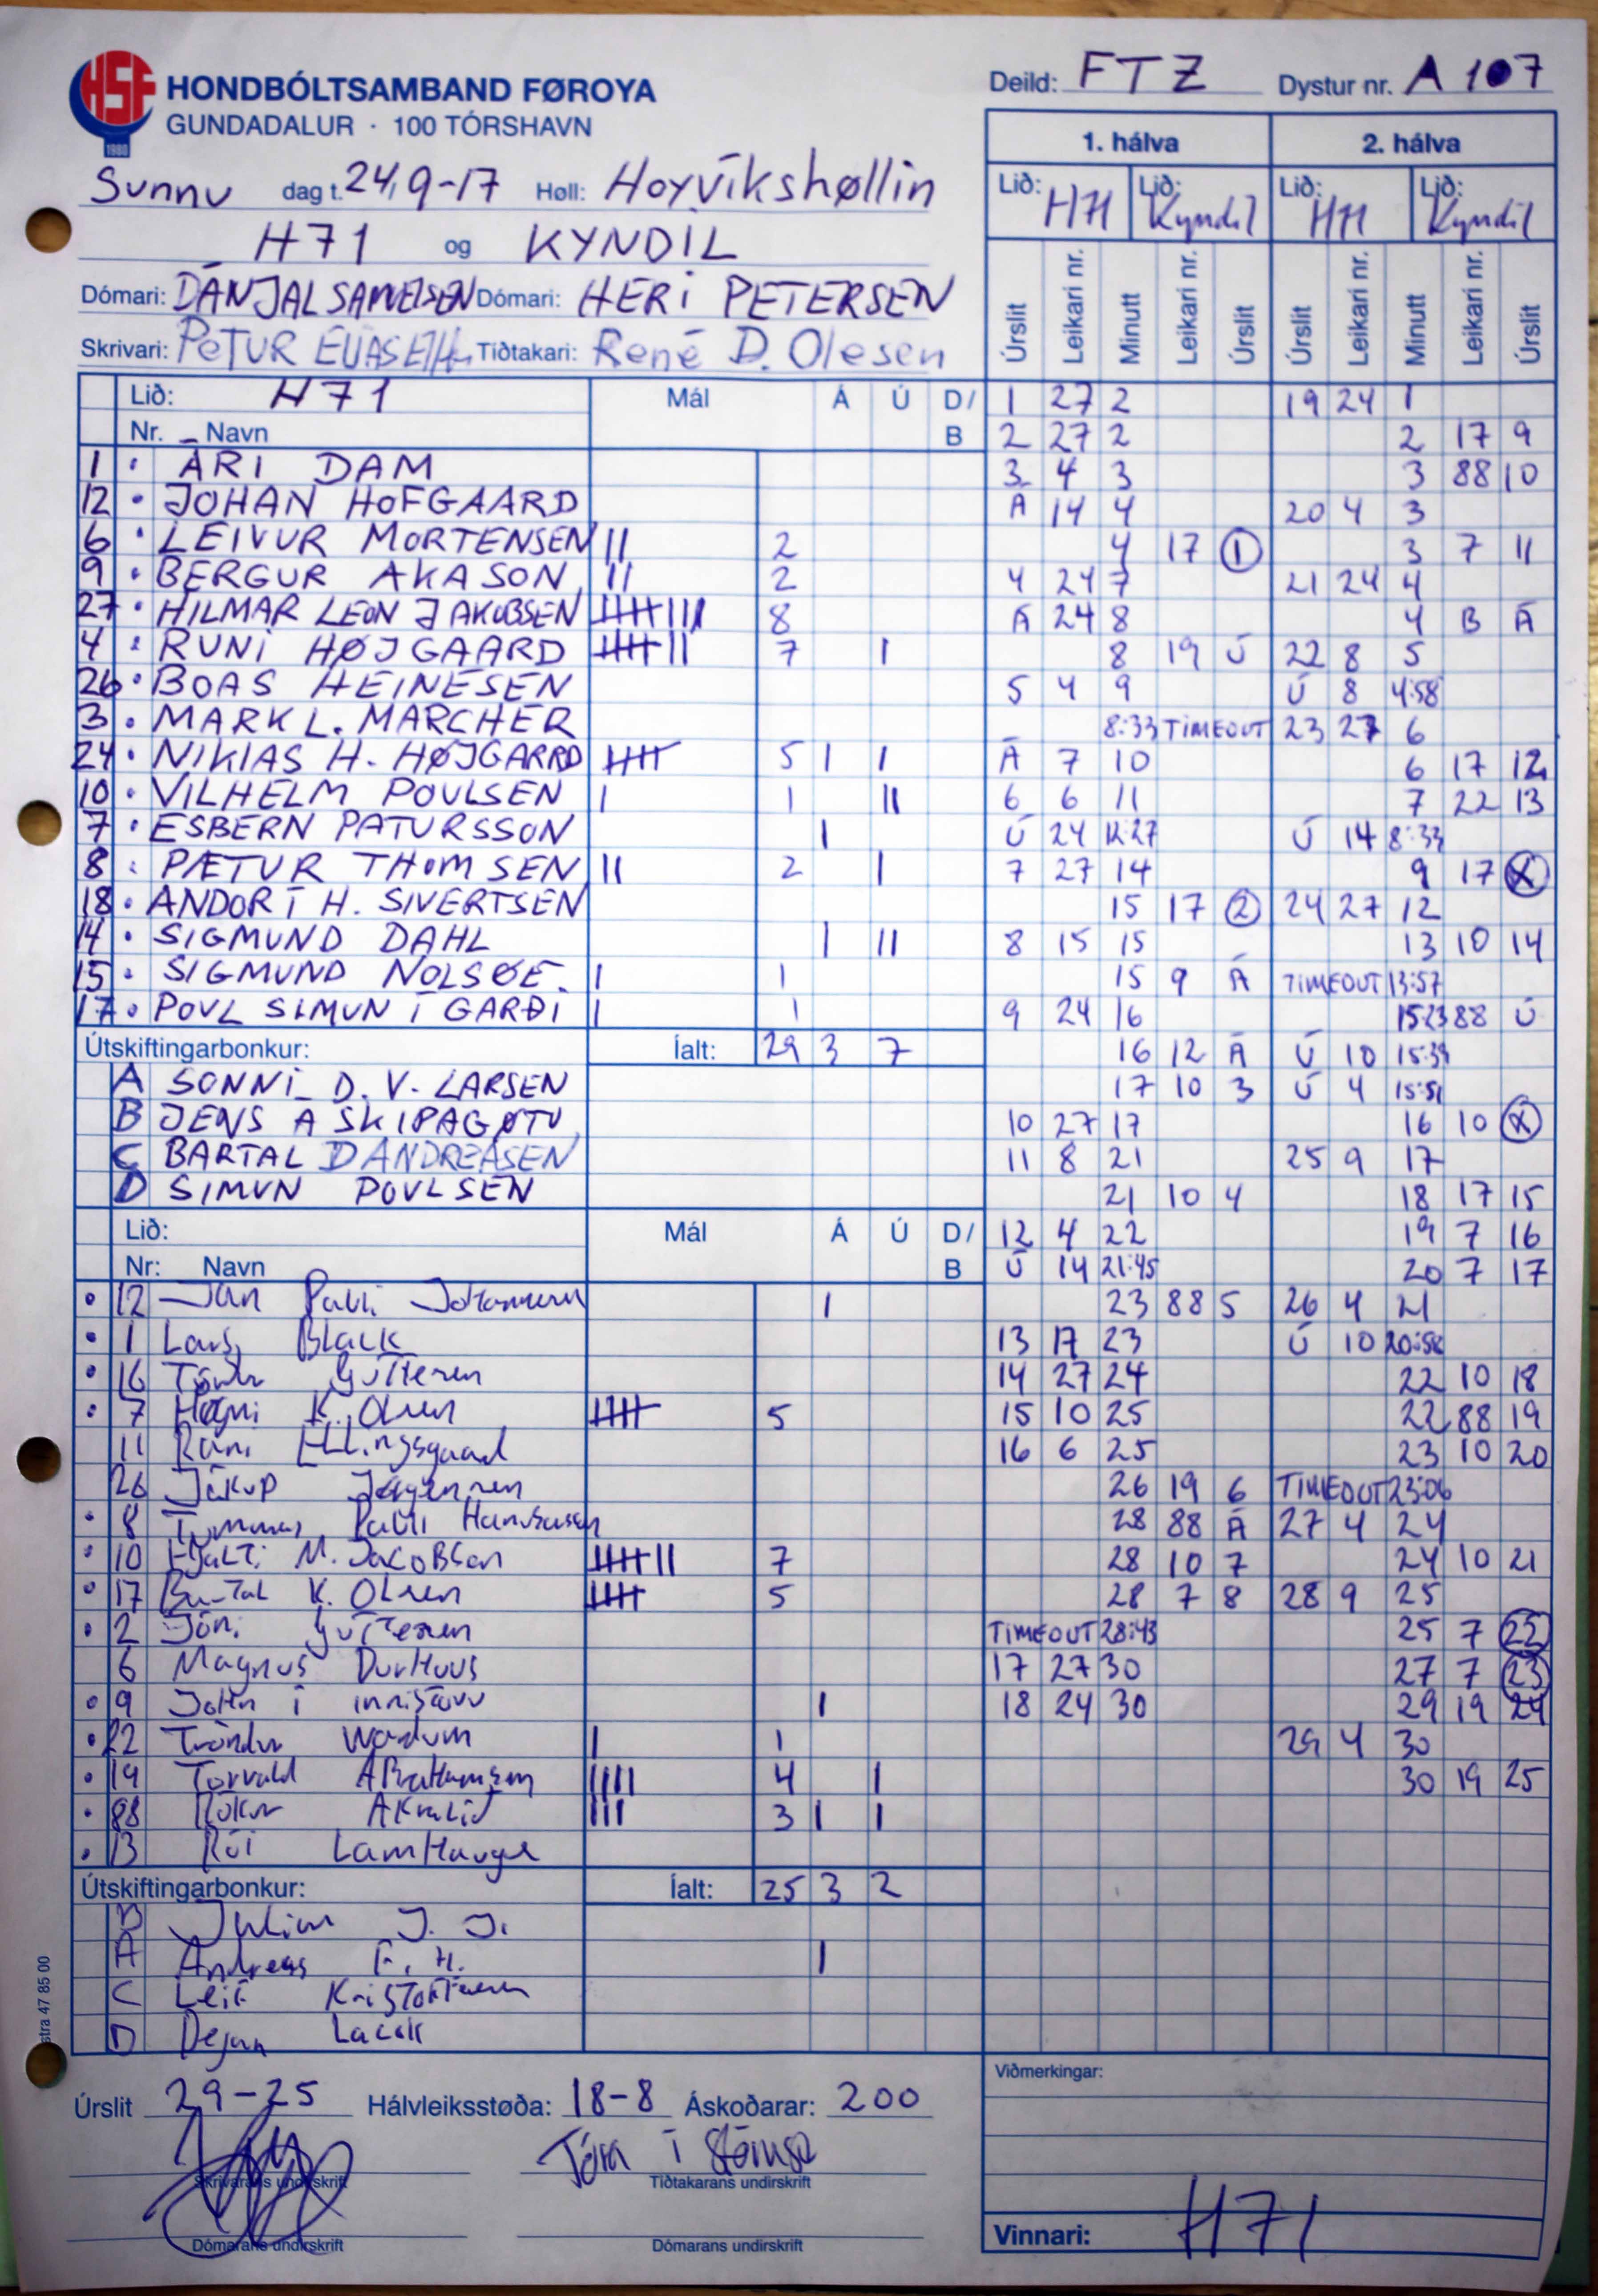 HSF
1980
HONDBÓLTSAMBAND FØROYA
GUNDADALUR · 100 TÓRSHAVN
Deild: FTZ Dystur nr. A 107
Sunnu dag t. 24/9-17 Høll: Hoyvíkshøllin
H71 og KYNDIL
Dómari: DÁNJAL Dómari: HERI PETERSEN
Skrivari: PETUR Tíðtakari: René D. Olesen
Lið: H71 Mál Á Ú D/B
Nr. Navn
1 ÁRI DAM
12 JOHAN HOFGAARD
6 LEIVUR MORTENSEN II 2
9 BERGUR ÁKASON II 2
27 HILMAR LEON JAKOBSEN IIIII III 8
4 RÚNI HØJGAARD IIIII II 7 I
26 BOAS HEINESEN
3 MARK L. MARCHER
24 NIKLAS H. HØJGARRD IIIII 5 I I
10 VILHELM POULSEN I 1 II
7 ESBERN PATURSSON I
8 PÆTUR THOMSEN II 2 I
18 ANDOR Í H. SIVERTSEN
14 SIGMUND DAHL I II
15 SIGMUND NOLSØE. I 1
17 POVL SÍMUN Í GARÐI I 1
Útskiftingarbonkur: Íalt: 29 3 7
A SONNI D. V. LARSEN
B JENS Á SKIPAGØTU
C BARTAL D ANDREASEN
D SIMUN POULSEN
Lið: Mál Á Ú D/B
Nr: Navn
12 Jan Pauli I
1 Lars Black
16
7 Høgni K. Olsen IIIII 5
11 Rani
26 Jákup
8 Pauli
10 Hjalti M. Jacobsen IIIII II 7
17 K. Olsen IIIII 5
2
6 Magnus Durhuus
9 John í I
22 Tróndur Wardum I 1
19 Torvald IIII 4 I
88 III 3 I I
13 Rói Lamhauge
Útskiftingarbonkur: Íalt: 25 3 2
B Julian J. J.
A Andreas F. H. I
C Leif
D Dejan
Úrslit 29-25 Hálvleiksstøða: 18-8 Áskoðarar: 200
Tóra í
Skrivarans undirskrift Tíðtakarans undirskrift
Dómarans undirskrift Dómarans undirskrift
stra 47 85 00
1. hálva 2. hálva
Lið: H71 Lið: Kyndil Lið: H71 Lið: Kyndil
Úrslit Leikari nr. Minutt Leikari nr. Úrslit Úrslit Leikari nr. Minutt Leikari nr. Úrslit
1 27 2 19 24 1
2 27 2 2 17 9
3 4 3 3 88 10
Á 14 4 20 4 3
4 17 1 3 7 11
4 24 7 21 24 4
Á 24 8 4 B Á
8 19 Ú 22 8 5
5 4 9 Ú 8 4:58
8:33 TIMEOUT 23 27 6
Á 7 10 6 17 12
6 6 11 7 22 13
Ú 24 12:27 Ú 14 8:33
7 27 14 9 17 X
15 17 2 24 27 12
8 15 15 13 10 14
15 9 Á TIMEOUT 13:57
9 24 16 15:23 88 Ú
16 12 Á Ú 10 15:39
17 10 3 Ú 4 15:51
10 27 17 16 10 X
11 8 21 25 9 17
21 10 4 18 17 15
12 4 22 19 7 16
Ú 14 21:45 20 7 17
23 88 5 26 4 21
13 17 23 Ú 10 20:58
14 27 24 22 10 18
15 10 25 22 88 19
16 6 25 23 10 20
26 19 6 TIMEOUT 23:06
28 88 Á 27 4 24
28 10 7 24 10 21
28 7 8 28 9 25
TIMEOUT 28:43 25 7 22
17 27 30 27 7 23
18 24 30 29 19 24
29 4 30
30 19 25
Viðmerkingar:
Vinnari: H71